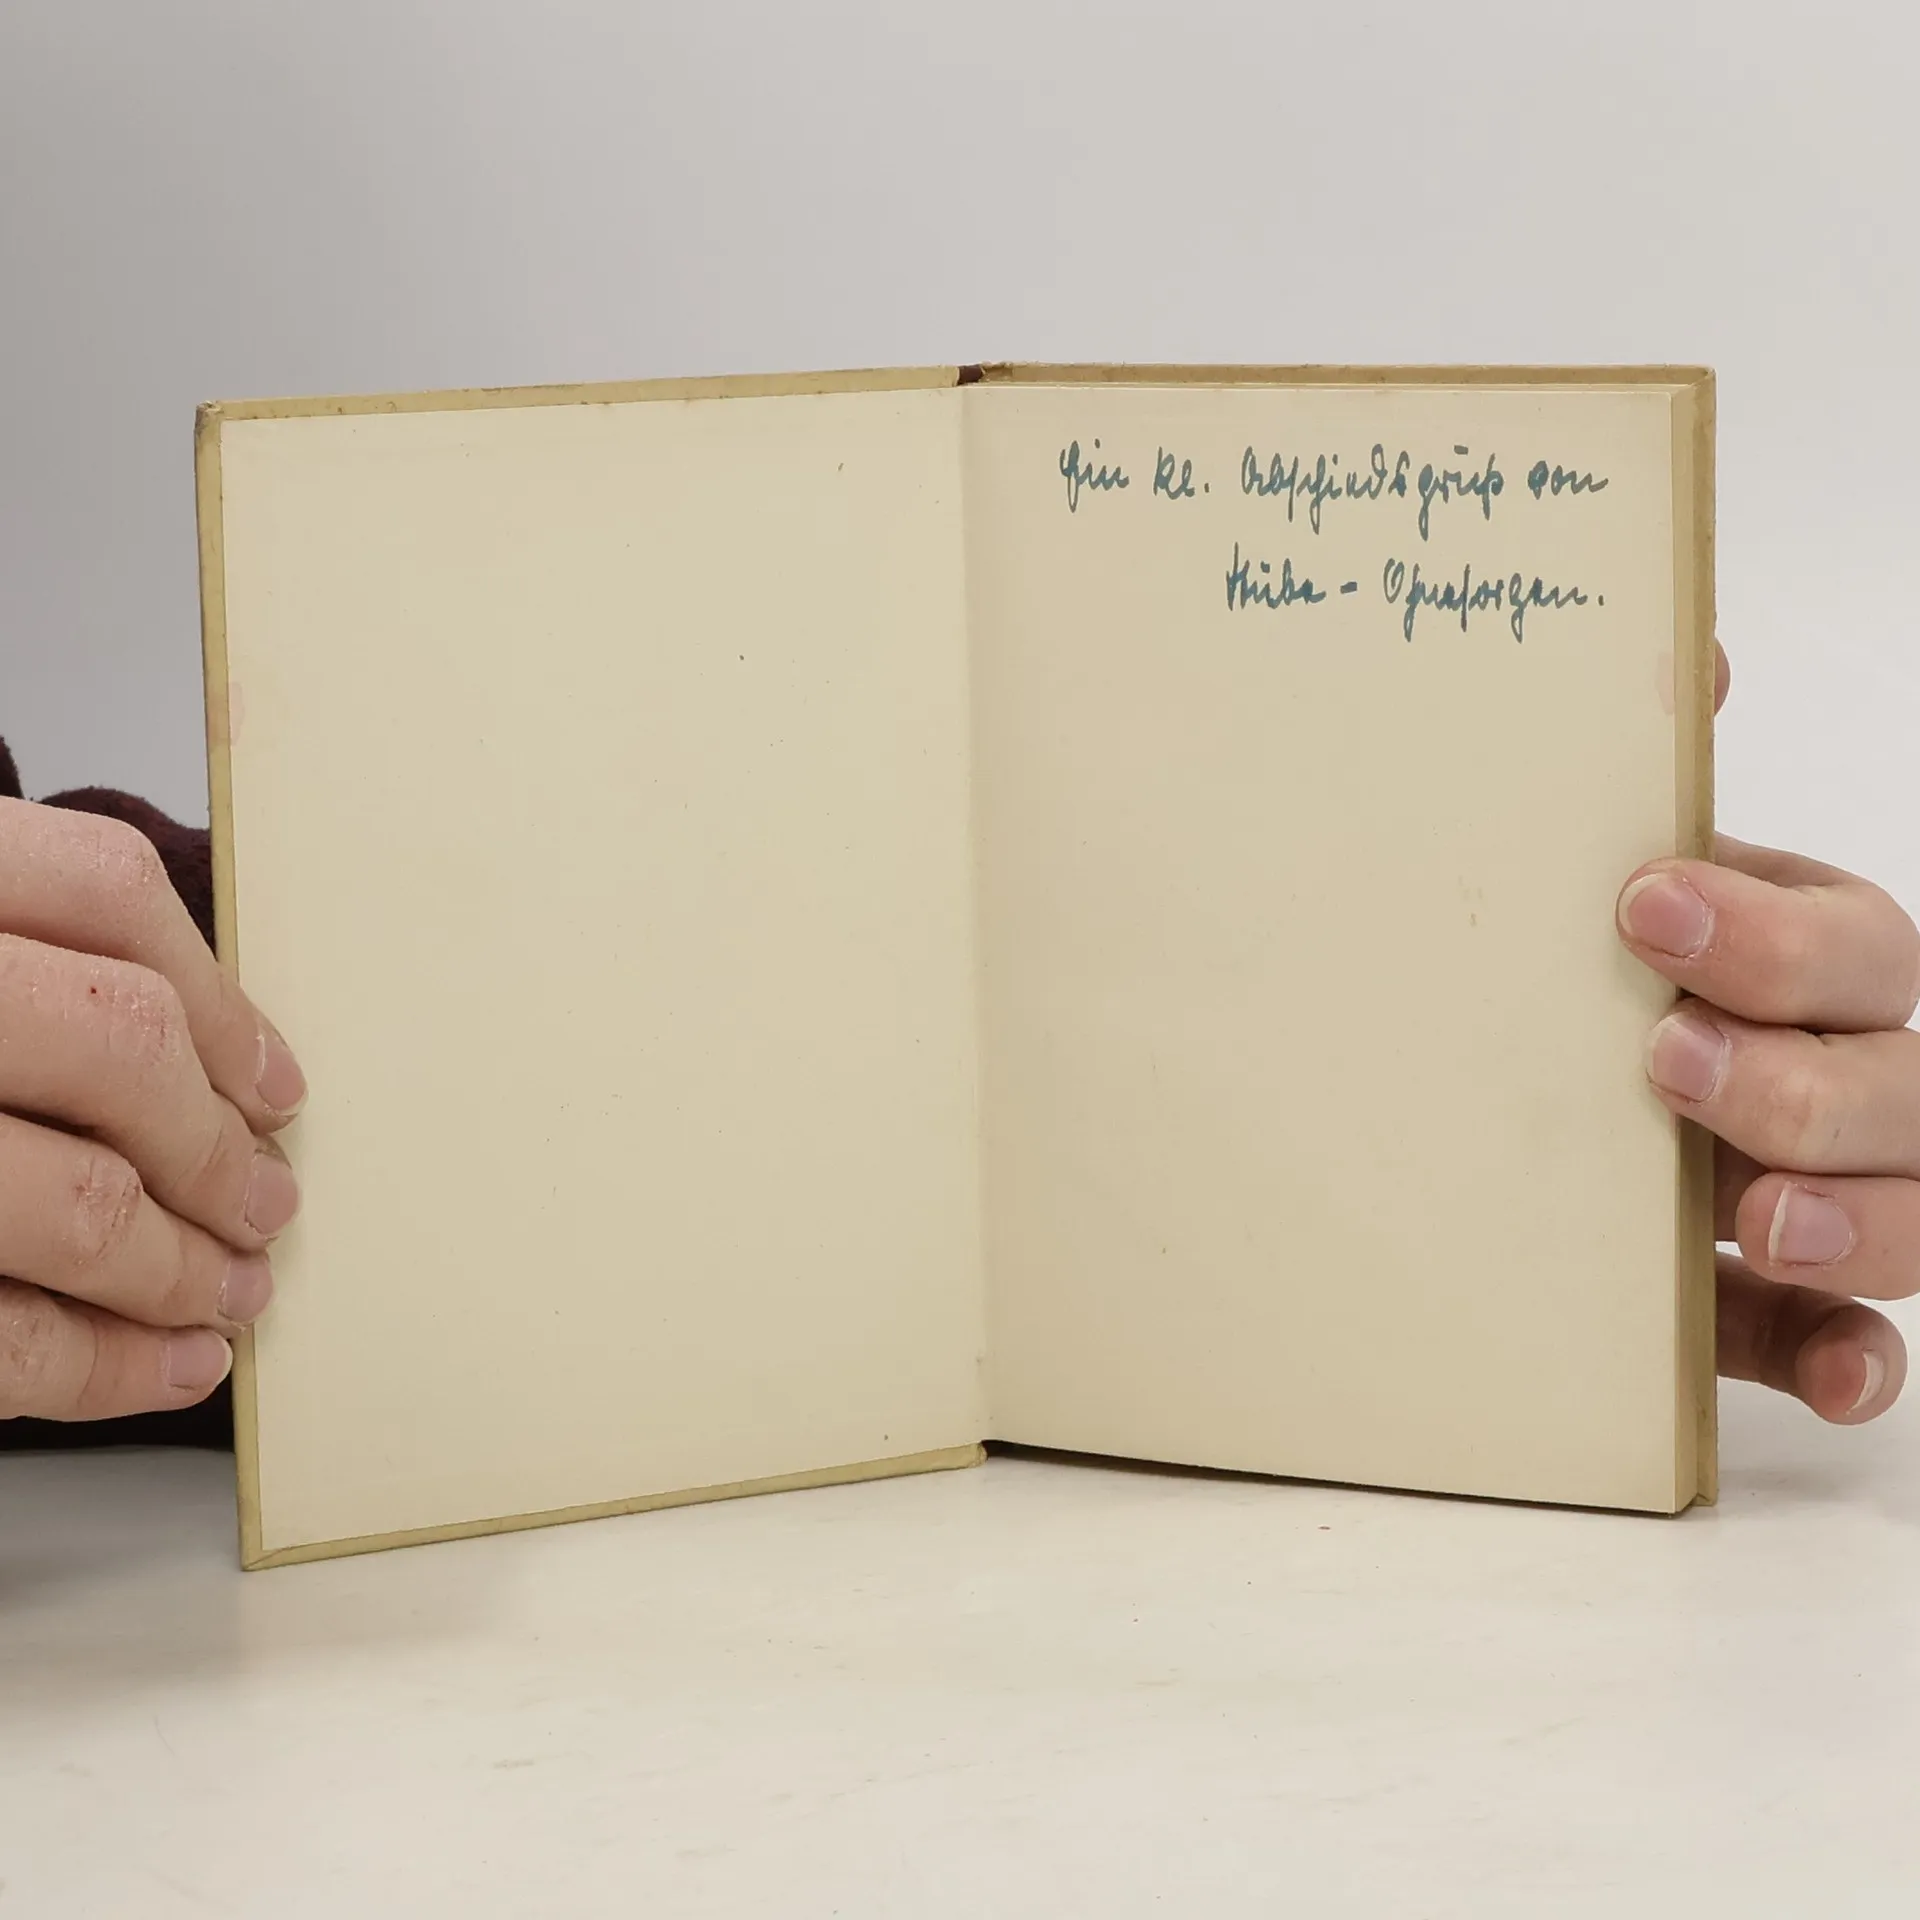 Ein kl. Abschiedsgruß von
Stube - Ohnesorgen.